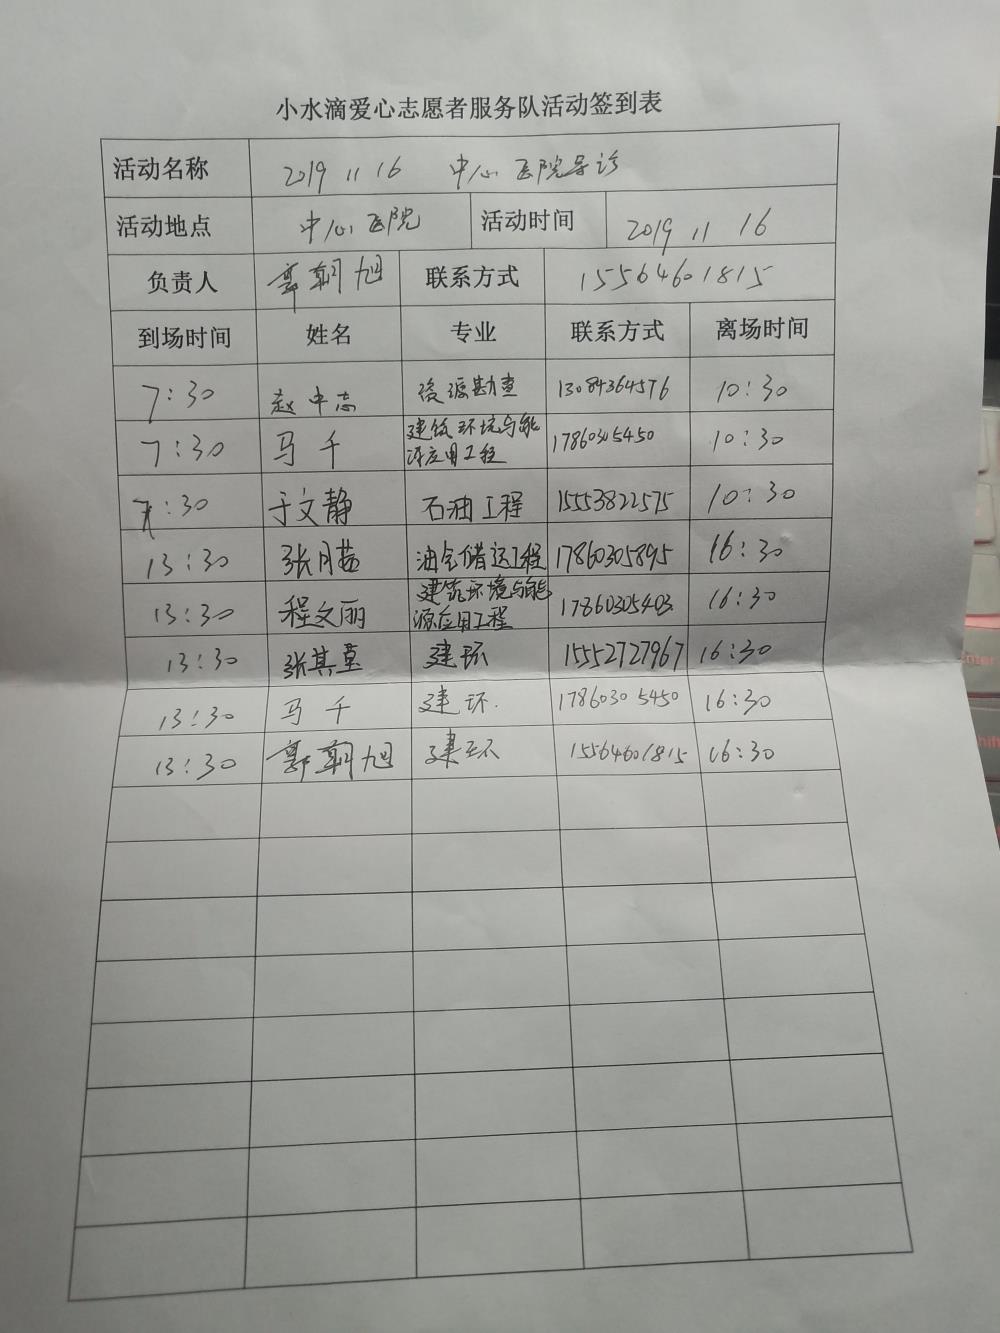 小水滴爱心志愿者服务队活动签到表
活动名称 2019 11 16 中心医院导诊
活动地点 中心医院 活动时间 2019 11 16
负责人 郭朝旭 联系方式 15564601815
到场时间 姓名 专业 联系方式 离场时间
7:30 赵中志 资源勘查 13084364576 10:30
7:30 马千 建筑环境与能
源应用工程 17860305450 10:30
7:30 于文静 石油工程 15553822575 10:30
13:30 张月茹 油气储运工程 17860305895 16:30
13:30 程文丽 建筑环境与能
源应用工程 17860305403 16:30
13:30 张其 建环 15552727967 16:30
13:30 马千 建环. 17860305450 16:30
13:30 郭朝旭 建环 15564601815 16:30
enter
shift